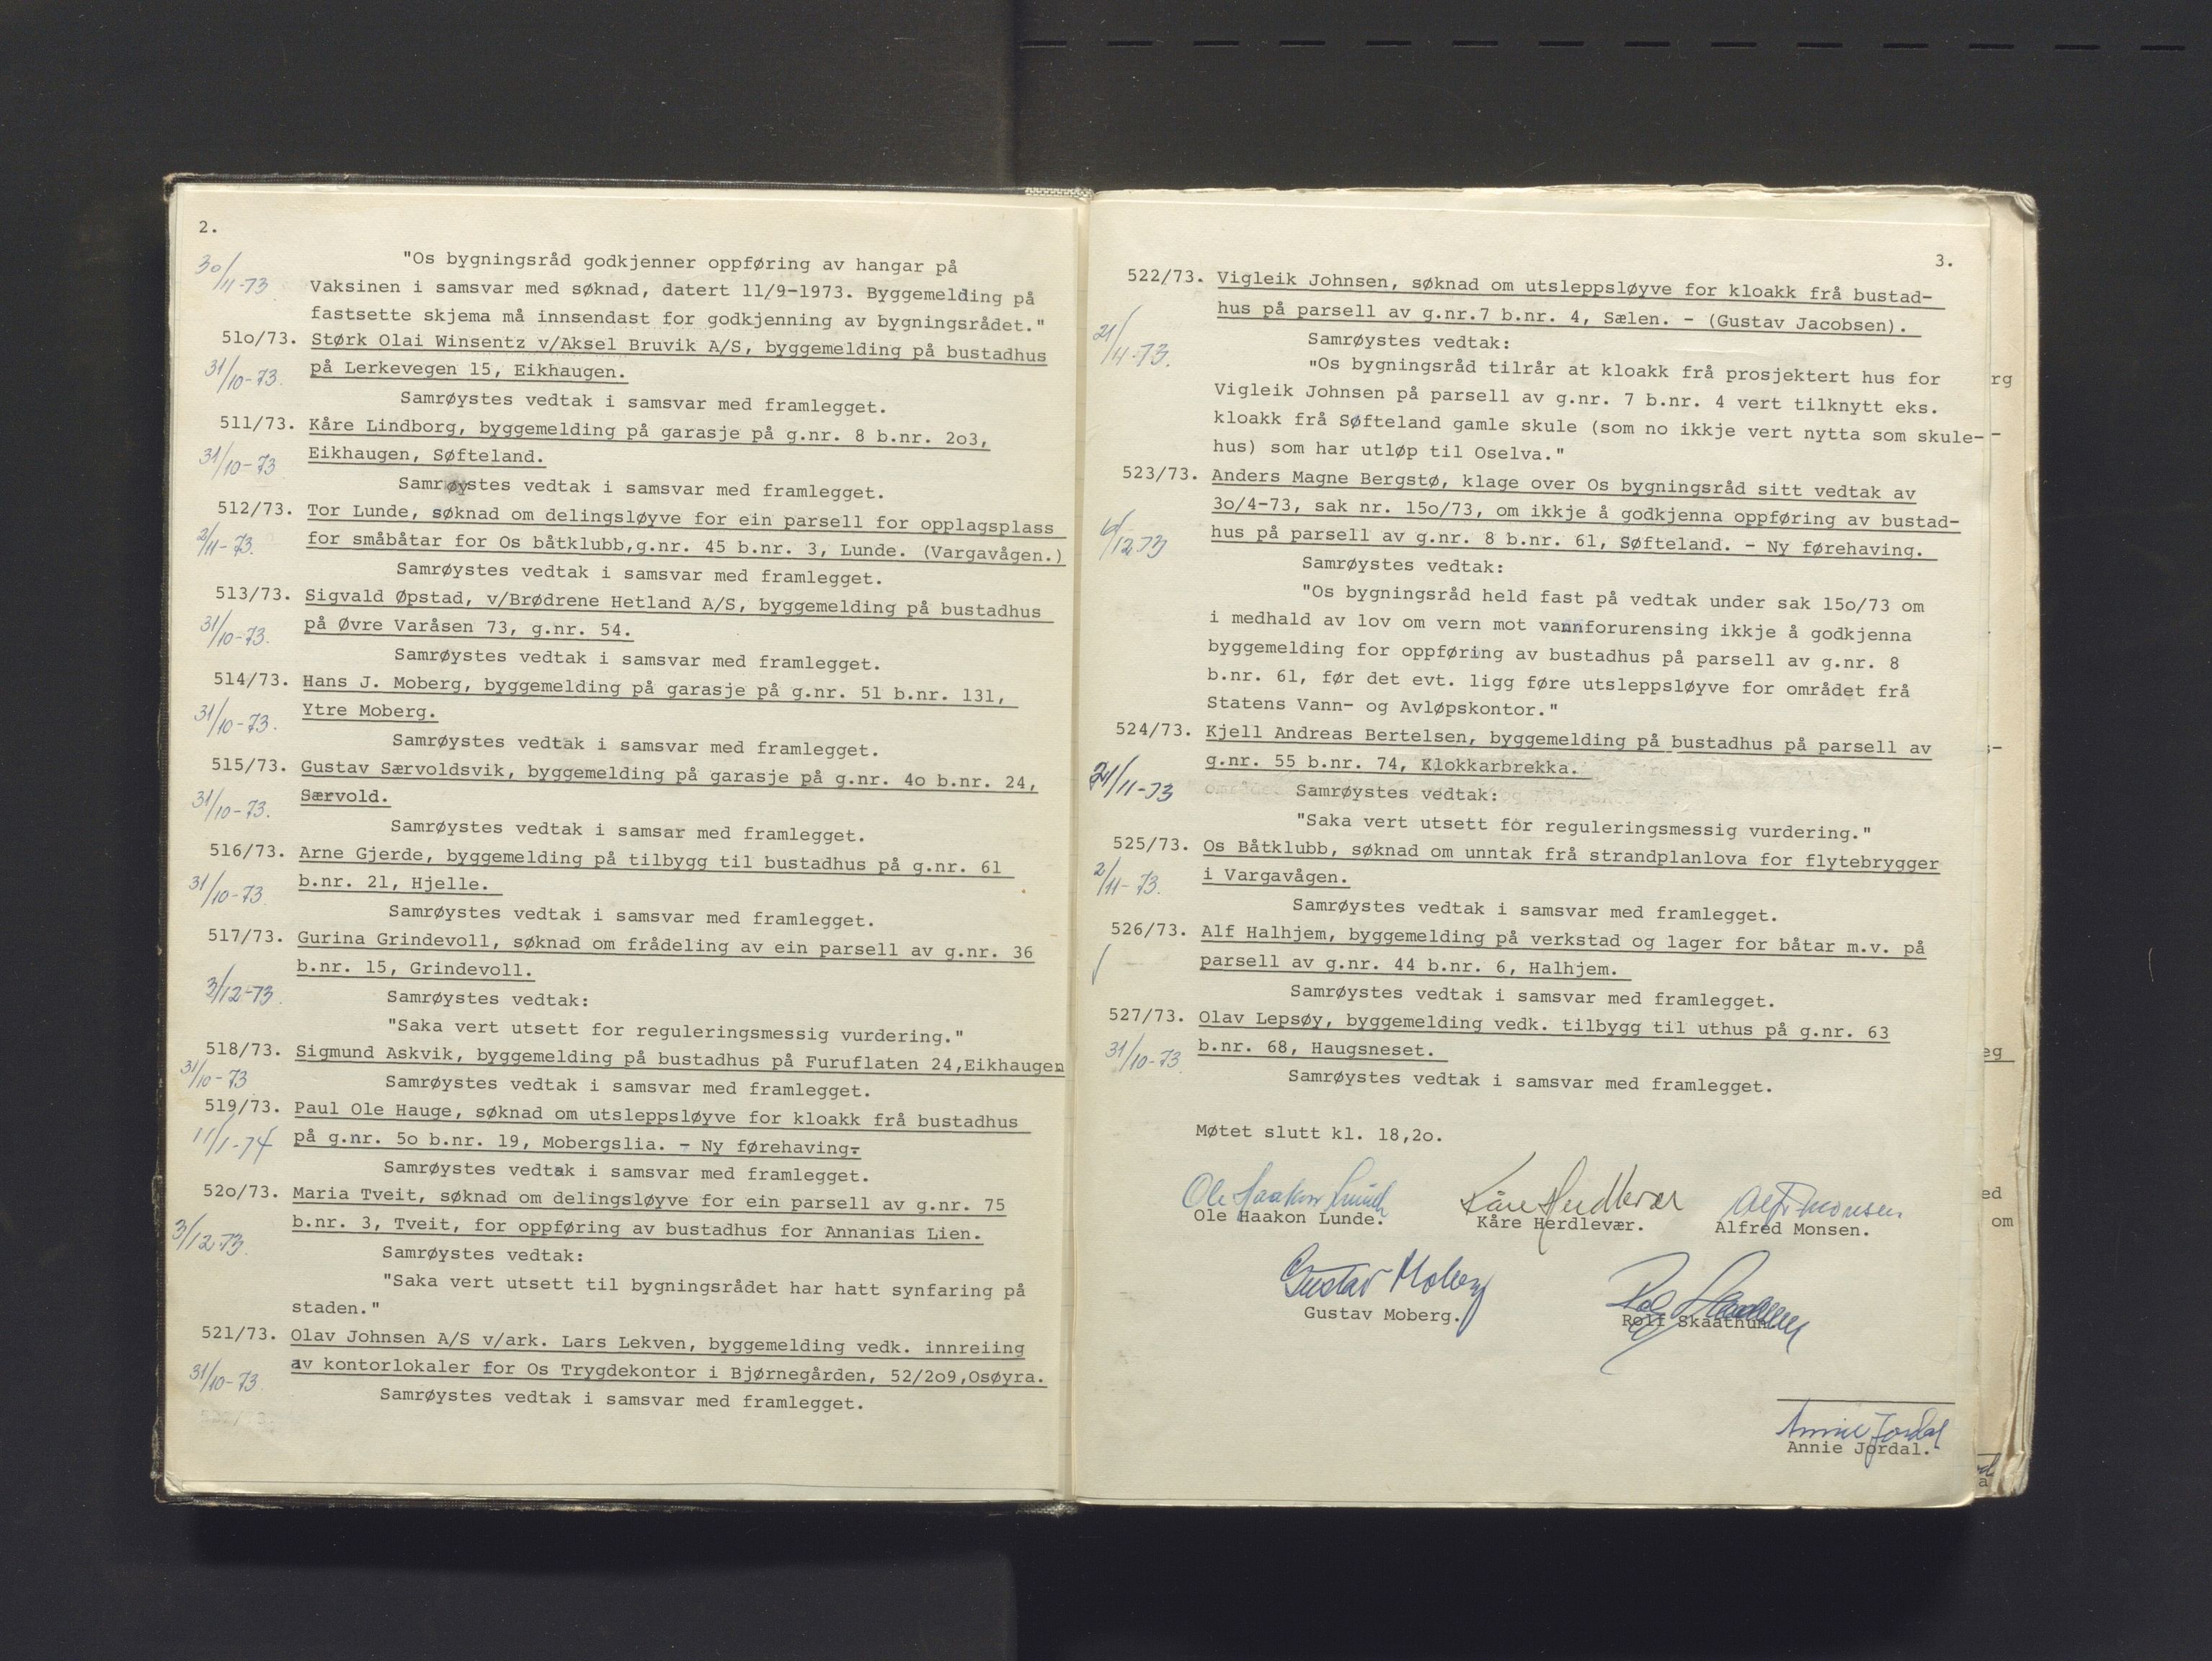 2.
"Os bygningsråd godkjenner oppføring av hangar på
30/11-73 Vaksinen i samsvar med søknad, datert 11/9-1973. Byggemelding på
fastsette skjema må innsendast for godkjenning av bygningsrådet."
51o/73. Størk Olai Winsentz v/Aksel Bruvik A/S, byggemelding på bustadhus
31/10-73. på Lerkevegen 15, Eikhaugen.
Samrøystes vedtak i samsvar med framlegget.
511/73. Kåre Lindborg, byggemelding på garasje på g.nr. 8 b.nr. 2o3,
31/10-73 Eikhaugen, Søfteland.
Samrøystes vedtak i samsvar med framlegget.
512/73. Tor Lunde, søknad om delingsløyve for ein parsell for opplagsplass
2/11-73. for småbåtar for Os båtklubb,g.nr. 45 b.nr. 3, Lunde. (Vargavågen.)
Samrøystes vedtak i samsvar med framlegget.
513/73. Sigvald Øpstad, v/Brødrene Hetland A/S, byggemelding på bustadhus
31/10-73. på Øvre Varåsen 73, g.nr. 54.
Samrøystes vedtak i samsvar med framlegget.
514/73. Hans J. Moberg, byggemelding på garasje på g.nr. 51 b.nr. 131,
31/10-73. Ytre Moberg.
Samrøystes vedtak i samsvar med framlegget.
515/73. Gustav Særvoldsvik, byggemelding på garasje på g.nr. 4o b.nr. 24,
31/10-73. Særvold.
Samrøystes vedtak i samsar med framlegget.
516/73. Arne Gjerde, byggemelding på tilbygg til bustadhus på g.nr. 61
31/10-73. b.nr. 21, Hjelle.
Samrøystes vedtak i samsvar med framlegget.
517/73. Gurina Grindevoll, søknad om frådeling av ein parsell av g.nr. 36
b.nr. 15, Grindevoll.
3/12-73. Samrøystes vedtak:
"Saka vert utsett for reguleringsmessig vurdering."
518/73. Sigmund Askvik, byggemelding på bustadhus på Furuflaten 24,Eikhaugen
31/10-73 Samrøystes vedtak i samsvar med framlegget.
519/73. Paul Ole Hauge, søknad om utsleppsløyve for kloakk frå bustadhus
11/1-74 på g.nr. 5o b.nr. 19, Mobergslia. - Ny førehaving-
Samrøystes vedtak i samsvar med framlegget.
52o/73. Maria Tveit, søknad om delingsløyve for ein parsell av g.nr. 75
3/12 73. b.nr. 3, Tveit, for oppføring av bustadhus for Annanias Lien.
Samrøystes vedtak:
"Saka vert utsett til bygningsrådet har hatt synfaring på
staden."
521/73. Olav Johnsen A/S v/ark. Lars Lekven, byggemelding vedk. innreiing
31/10-73. av kontorlokaler for Os Trygdekontor i Bjørnegården, 52/2o9,Osøyra.
Samrøystes vedtak i samsvar med framlegget.
3.
522/73. Vigleik Johnsen, søknad om utsleppsløyve for kloakk frå bustad-
hus på parsell av g.nr.7 b.nr. 4, Sælen. - (Gustav Jacobsen).
21/11-73. Samrøystes vedtak:
"Os bygningsråd tilrår at kloakk frå prosjektert hus for
Vigleik Johnsen på parsell av g.nr. 7 b.nr. 4 vert tilknytt eks.
kloakk frå Søfteland gamle skule (som no ikkje vert nytta som skule-
hus) som har utløp til Oselva."
523/73. Anders Magne Bergstø, klage over Os bygningsråd sitt vedtak av
3o/4-73, sak nr. 15o/73, om ikkje å godkjenna oppføring av bustad-
6/12 73 hus på parsell av g.nr. 8 b.nr. 61, Søfteland. - Ny førehaving.
Samrøystes vedtak:
"Os bygningsråd held fast på vedtak under sak 15o/73 om
i medhald av lov om vern mot vannforurensing ikkje å godkjenna
byggemelding for oppføring av bustadhus på parsell av g.nr. 8
b.nr. 61, før det evt. ligg føre utsleppsløyve for området frå
Statens Vann- og Avløpskontor."
524/73. Kjell Andreas Bertelsen, byggemelding på bustadhus på parsell av
g.nr. 55 b.nr. 74, Klokkarbrekka.
21/11-73 Samrøystes vedtak:
"Saka vert utsett for reguleringsmessig vurdering."
525/73. Os Båtklubb, søknad om unntak frå strandplanlova for flytebrygger
2/11-73. i Vargavågen.
Samrøystes vedtak i samsvar med framlegget.
526/73. Alf Halhjem, byggemelding på verkstad og lager for båtar m.v. på
parsell av g.nr. 44 b.nr. 6, Halhjem.
Samrøystes vedtak i samsvar med framlegget.
527/73. Olav Lepsøy, byggemelding vedk. tilbygg til uthus på g.nr. 63
31/10-73. b.nr. 68, Haugsneset.
Samrøystes vedtak i samsvar med framlegget.
Møtet slutt kl. 18,2o.
Ole Haakon Lunde Kåre Herdlevær Alf Monsen
Ole Haakon Lunde. Kåre Herdlevær. Alfred Monsen.
Gustav Moberg
Gustav Moberg. Rolf Skåathun
Annie Jordal
Annie Jordal.